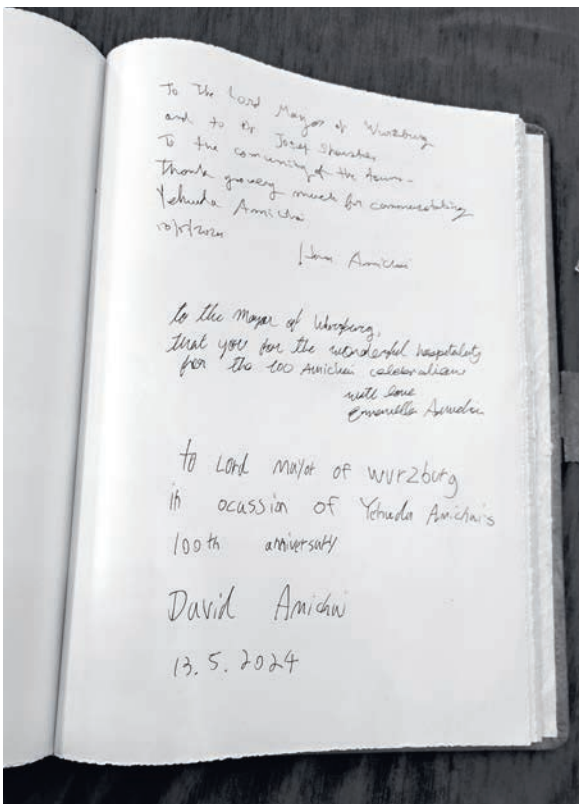 To The Lord Mayor of Wurzburg
and to Dr Josef
To the community of the town -
Thank you very much for commemorating
Yehuda Amichai
Hana Amichai
to the Mayor of Wurzburg,
that you for the wonderful hospitality
for the 100 Amichai celebration
with love
Emanuella Amichai
to Lord Mayor of Wurzburg
in ocussion of Yehuda Amichai's
100th anniversaty
David Amichai
13.5.2024